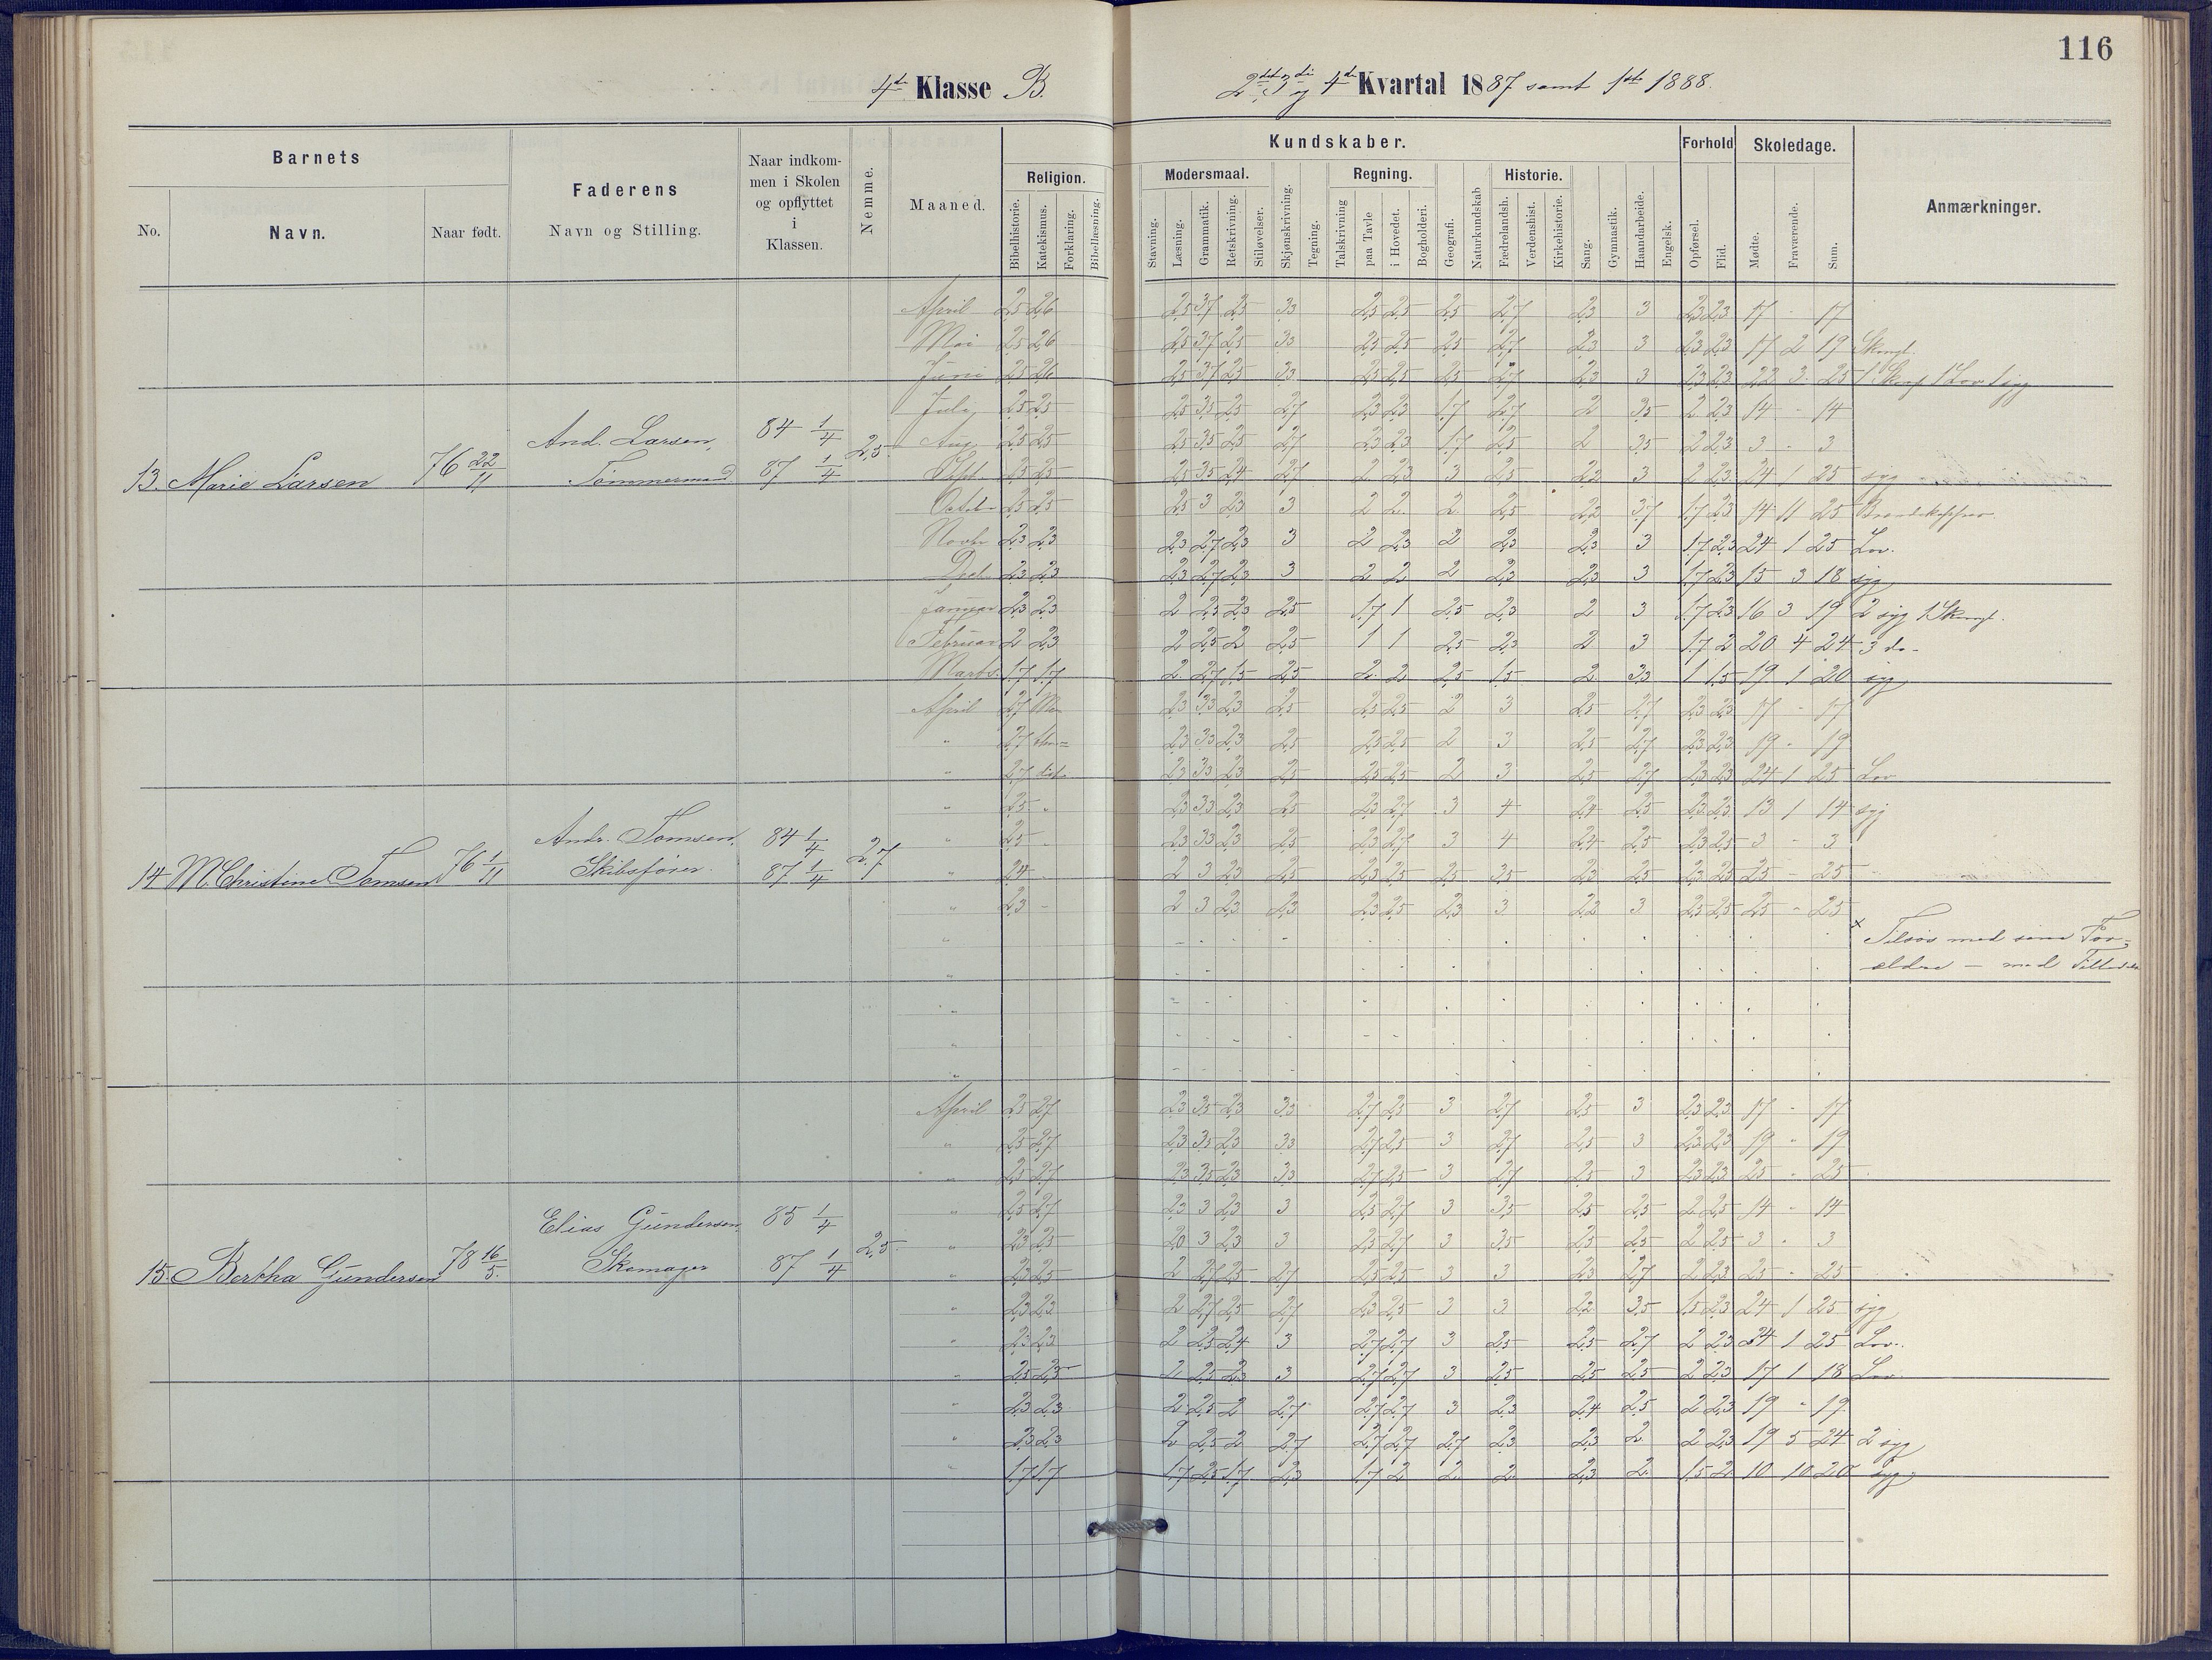 116
4de Klasse B.
2det 3die og 4de Kvartal 1887 samt 1ste 1888.
Barnets
Faderens
Naar indkommen i Skolen og opflyttet i Klassen.
Nemme.
Maaned.
Kundskaber.
Forhold
Skoledage.
Anmærkninger.
No. Navn. Naar født. Navn og Stilling.
Religion. Modersmaal. Regning. Historie.
Bibelhistorie. Katekismus. Forklaring. Bibellæsning. Stavning. Læsning. Grammatik. Retskrivning. Stiløvelser. Skjønskrivning. Tegning. Talskrivning paa Tavle i Hovedet. Bogholderi. Geografi. Naturkundskab Fædrelandsh. Verdenshist. Kirkehistorie. Sang. Gymnastik. Haandarbeide. Engelsk. Opførsel. Flid. Mødte. Fraværende. Sum.
April 2,5 2,6 2,5 3,7 2,5 3,3 2,5 2,5 2,5 2,7 2,3 3 2,3 2,3 17 - 17
Mai 2,5 2,6 2,5 3,7 2,5 3,3 2,5 2,5 2,5 2,7 2,3 3 2,3 2,3 17 2 19
Juni 2,5 2,6 2,5 3,7 2,5 3,3 2,5 2,5 2,5 2,7 2,3 3 2,3 2,3 22 3 25
Juli 2,5 2,5 2,5 3,5 2,5 2,7 2,3 2,3 1,7 2,7 2 3,5 2 2,3 14 - 14
Aug. 2,5 2,5 2,5 3,5 2,5 2,7 2,3 2,3 1,7 2,5 2 3,5 2 2,3 3 - 3
13. Marie Larsen 76 22/11 And. Larsen, Tømmermand 84 1/4 87 1/4 2,5.
Sept. 2,5 2,5 2,5 3,5 2,4 2,7 2 2,3 3 2,5 2,2 3 2 2,3 24 1 25 syg
Octbr 2,5 2,5 2,5 3 2,3 3 2 2 2 2,5 2,2 3,7 1,7 2,3 14 11 25
Novbr 2,3 2,3 2,3 2,7 2,3 3 2 2,3 2 2,3 2,3 3 1,7 2,3 24 1 25 Lov.
Decb. 2,3 2,3 2,3 2,7 2,3 3 2 2 2 2,3 2,3 3 1,7 2,3 15 3 18 syg
Januar 2,3 2,3 2 2,5 2,3 2,5 1,7 1 2,5 2,3 2 3 1,7 2,3 16 3 19 2 syg 1
Februar 2 2,3 2 2,5 2 2,5 1 1 2,5 2,3 2 3 1,7 2 20 4 24 3 do -
Marts. 1,7 1,7 2 2,7 1,5 2,5 2 2 2,5 1,5 2 3,3 1 1,5 19 1 20 syg
April 2,7 2,3 3,3 2,3 2,5 2,5 2,5 2 3 2,5 2,7 2,3 2,3 17 - 17
" 2,7 2,3 3,3 2,3 2,5 2,5 2,5 2 3 2,5 2,7 2,3 2,3 19 - 19
" 2,7 2,3 3,3 2,3 2,5 2,5 2,5 2 3 2,5 2,7 2,3 2,3 24 1 25 Lov
" 2,5 " 2,3 3,3 2,3 2,5 2,3 2,7 3 4 2,4 2,5 2,3 2,3 13 1 14 syg
" 2,5 " 2,3 3,3 2,3 2,5 2,3 2,7 3 4 2,4 2,5 2,3 2,5 3 - 3
14 M. Christine Tomsen 76 1/11 Andr. Tomsen, Skibsfører. 84 1/4 87 1/4 2,7
" 2,4 2 3 2,3 2,5 2,3 2,5 2,5 3,5 2,3 2,5 2,3 2,5 25 - 25
" 2,3 - 2 3 2,3 2,3 2,3 2,5 2,3 3 2,2 3 2,5 2,5 25 - 25
x Tilsøs med sine For-
ældre - med
April 2,5 2,7 2,3 3,5 2,3 3,3 2,7 2,5 3 2,7 2,5 3 2,3 2,3 17 - 17
" 2,5 2,7 2,3 3,5 2,3 3,3 2,7 2,5 3 2,7 2,5 3 2,3 2,3 19 - 19
" 2,5 2,7 2,3 3,5 2,3 3,3 2,7 2,5 3 2,7 2,5 3 2,3 2,3 25 - 25
" 2,5 2,7 2,3 3 2,3 3 2,5 2,7 3 3,5 2,5 2,5 2 2,5 14 - 14
" 2,3 2,5 2,0 3 2,3 3 2,5 2,7 3 3,5 2,5 2,5 2 2,5 3 - 3
15. Bertha Gundersen 78 16/5. Elias Gundersen, Skomager 85 1/4 87 1/4 2,5.
" 2,3 2,5 2 2,7 2,5 2,7 2,5 2,5 3 3 2,3 2,7 2 2,3 25 - 25
" 2,3 2,3 2 2,7 2,5 2,7 2,3 2,5 3 3 2,2 3,5 1,5 2,3 24 1 25 syg
" 2,3 2,3 2 2,5 2,4 3 2,7 2,7 3 2,5 2,5 2,7 2 2,3 24 1 25 Lov.
" 2,5 2,5 2 2,5 2,3 3 2,7 2,7 3 2,5 2,5 2,5 2 2,3 17 1 18 Lov.
" 2,3 2,3 2 2,5 2 2,7 2,7 2,7 3 2,3 2,4 2,5 2 2,3 19 - 19
" 2,3 2,3 2 2,5 2 2,7 2,7 2,7 2,7 2,3 2,3 2 2 2,3 19 5 24 2 syg
" 1,7 1,7 1,7 2,5 1,7 2,3 1,7 2 2 2 2,3 2 1,5 2 10 10 20 syg